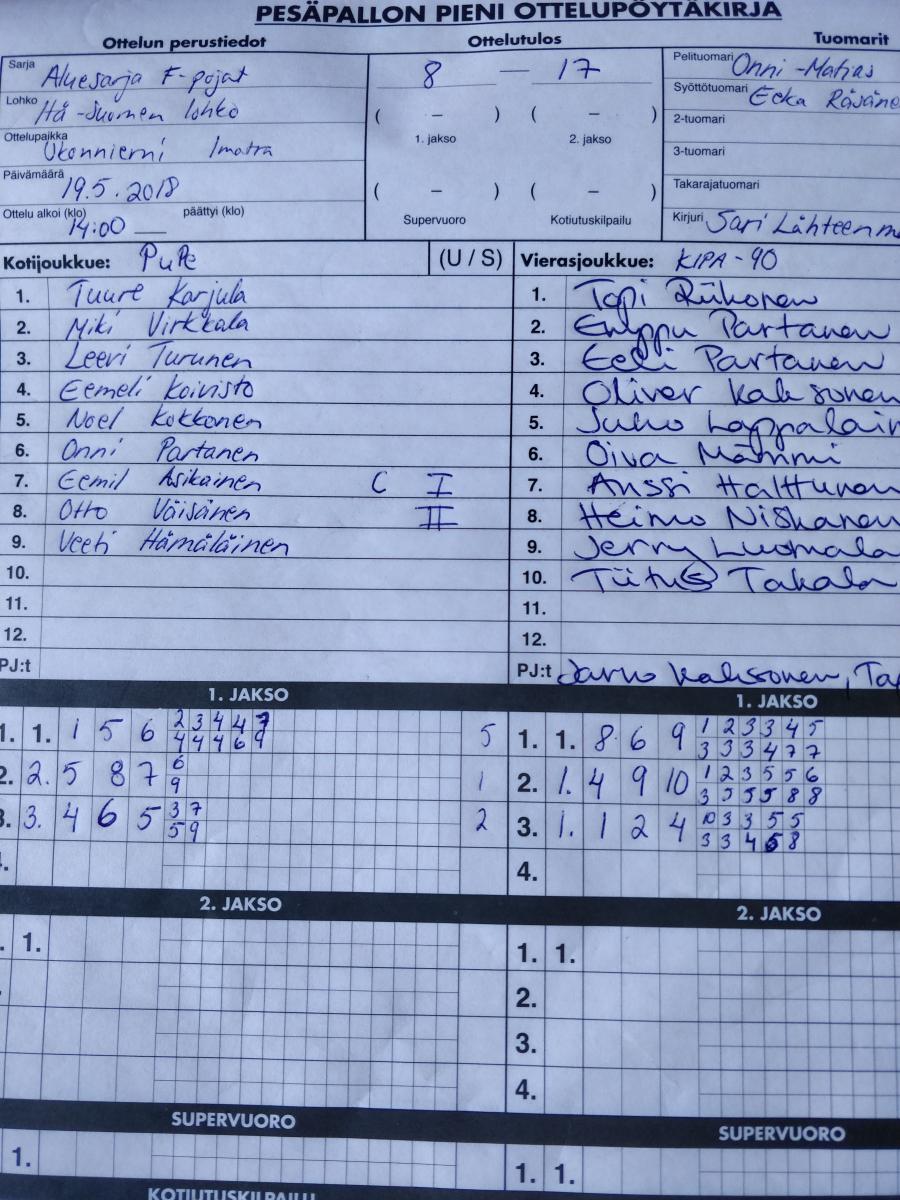 PESÄPALLON PIENI OTTELUPÖYTÄKIRJA
Ottelun perustiedot Ottelutulos Tuomarit
Sarja Aluesarja F-pojat
8 — 17
Pelituomari Onni-Matias
Lohko Itä-Suomen lohko
( – ) ( – )
Syöttötuomari Eeka
1. jakso 2. jakso
2-tuomari
Ottelupaikka Ukonniemi Imatra
3-tuomari
Päivämäärä 19.5.2018
( – ) ( – )
Takarajatuomari
Ottelu alkoi (klo) 14:00 päättyi (klo)
Supervuoro Kotiutuskilpailu
Kirjuri Sari
Kotijoukkue: PuPe (U / S) Vierasjoukkue: KIPA-90
1. Tuure Karjula 1. Topi Riikonen
2. Miki Virkkala 2. Partanen
3. Leevi Turunen 3. Eeli Partanen
4. Eemeli Koivisto 4. Oliver Kaksonen
5. Noel Kokkonen 5. Juho
6. Onni Partanen 6. Oiva
7. Eemil Asikainen C I 7. Anssi Halttunen
8. Otto Väisänen II 8. Heimo Niskanen
9. Veeti Hämäläinen 9. Jerry Luomala
10. 10. Tiitus Takala
11. 11.
12. 12.
PJ:t PJ:t Jarno Kaksonen,
1. JAKSO 1. JAKSO
1. 1. 1 5 6 2 3 4 4 7 5 1. 1. 8 6 9 1 2 3 3 4 5
4 4 4 6 9 3 3 3 4 7 7
2. 2. 5 8 7 6 1 2. 1. 4 9 10 1 2 3 5 5 6
9 3 5 5 5 8 8
3. 3. 4 6 5 3 7 2 3. 1. 1 2 4 10 3 3 5 5
5 9 3 3 4 6 8
4.
2. JAKSO 2. JAKSO
1. 1. 1.
2.
3.
4.
SUPERVUORO SUPERVUORO
1. 1. 1.
KOTIUTUSKILPAILU